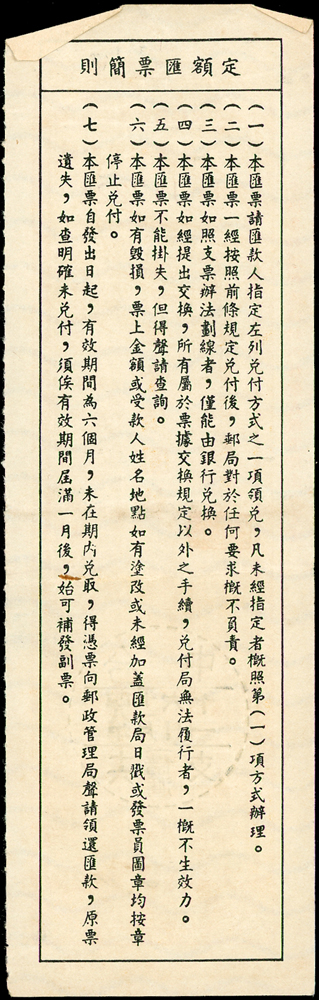 定額匯票簡則
(一)本匯票請匯款人指定左列兌付方式之一項領兌，凡未經指定者概照第(一)項方式辦理。
(二)本匯票一經按照前條規定兌付後，郵局對於任何要求概不負責。
(三)本匯票如照支票辦法劃線者，僅能由銀行兌換。
(四)本匯票如經提出交換，所有屬於票據交換規定以外之手續，兌付局無法履行者，一概不生效力。
(五)本匯票不能掛失，但得聲請查詢。
(六)本匯票如有毀損，票上金額或受款人姓名地點如有塗改或未經加蓋匯款局日戳或發票員圖章均按章
停止兌付。
(七)本匯票自發出日起，有效期間為六個月，未在期内兌取，得憑票向郵政管理局聲請領還匯款，原票
遺失，如查明確未兌付，須俟有效期間屆滿一月後，始可補發副票。